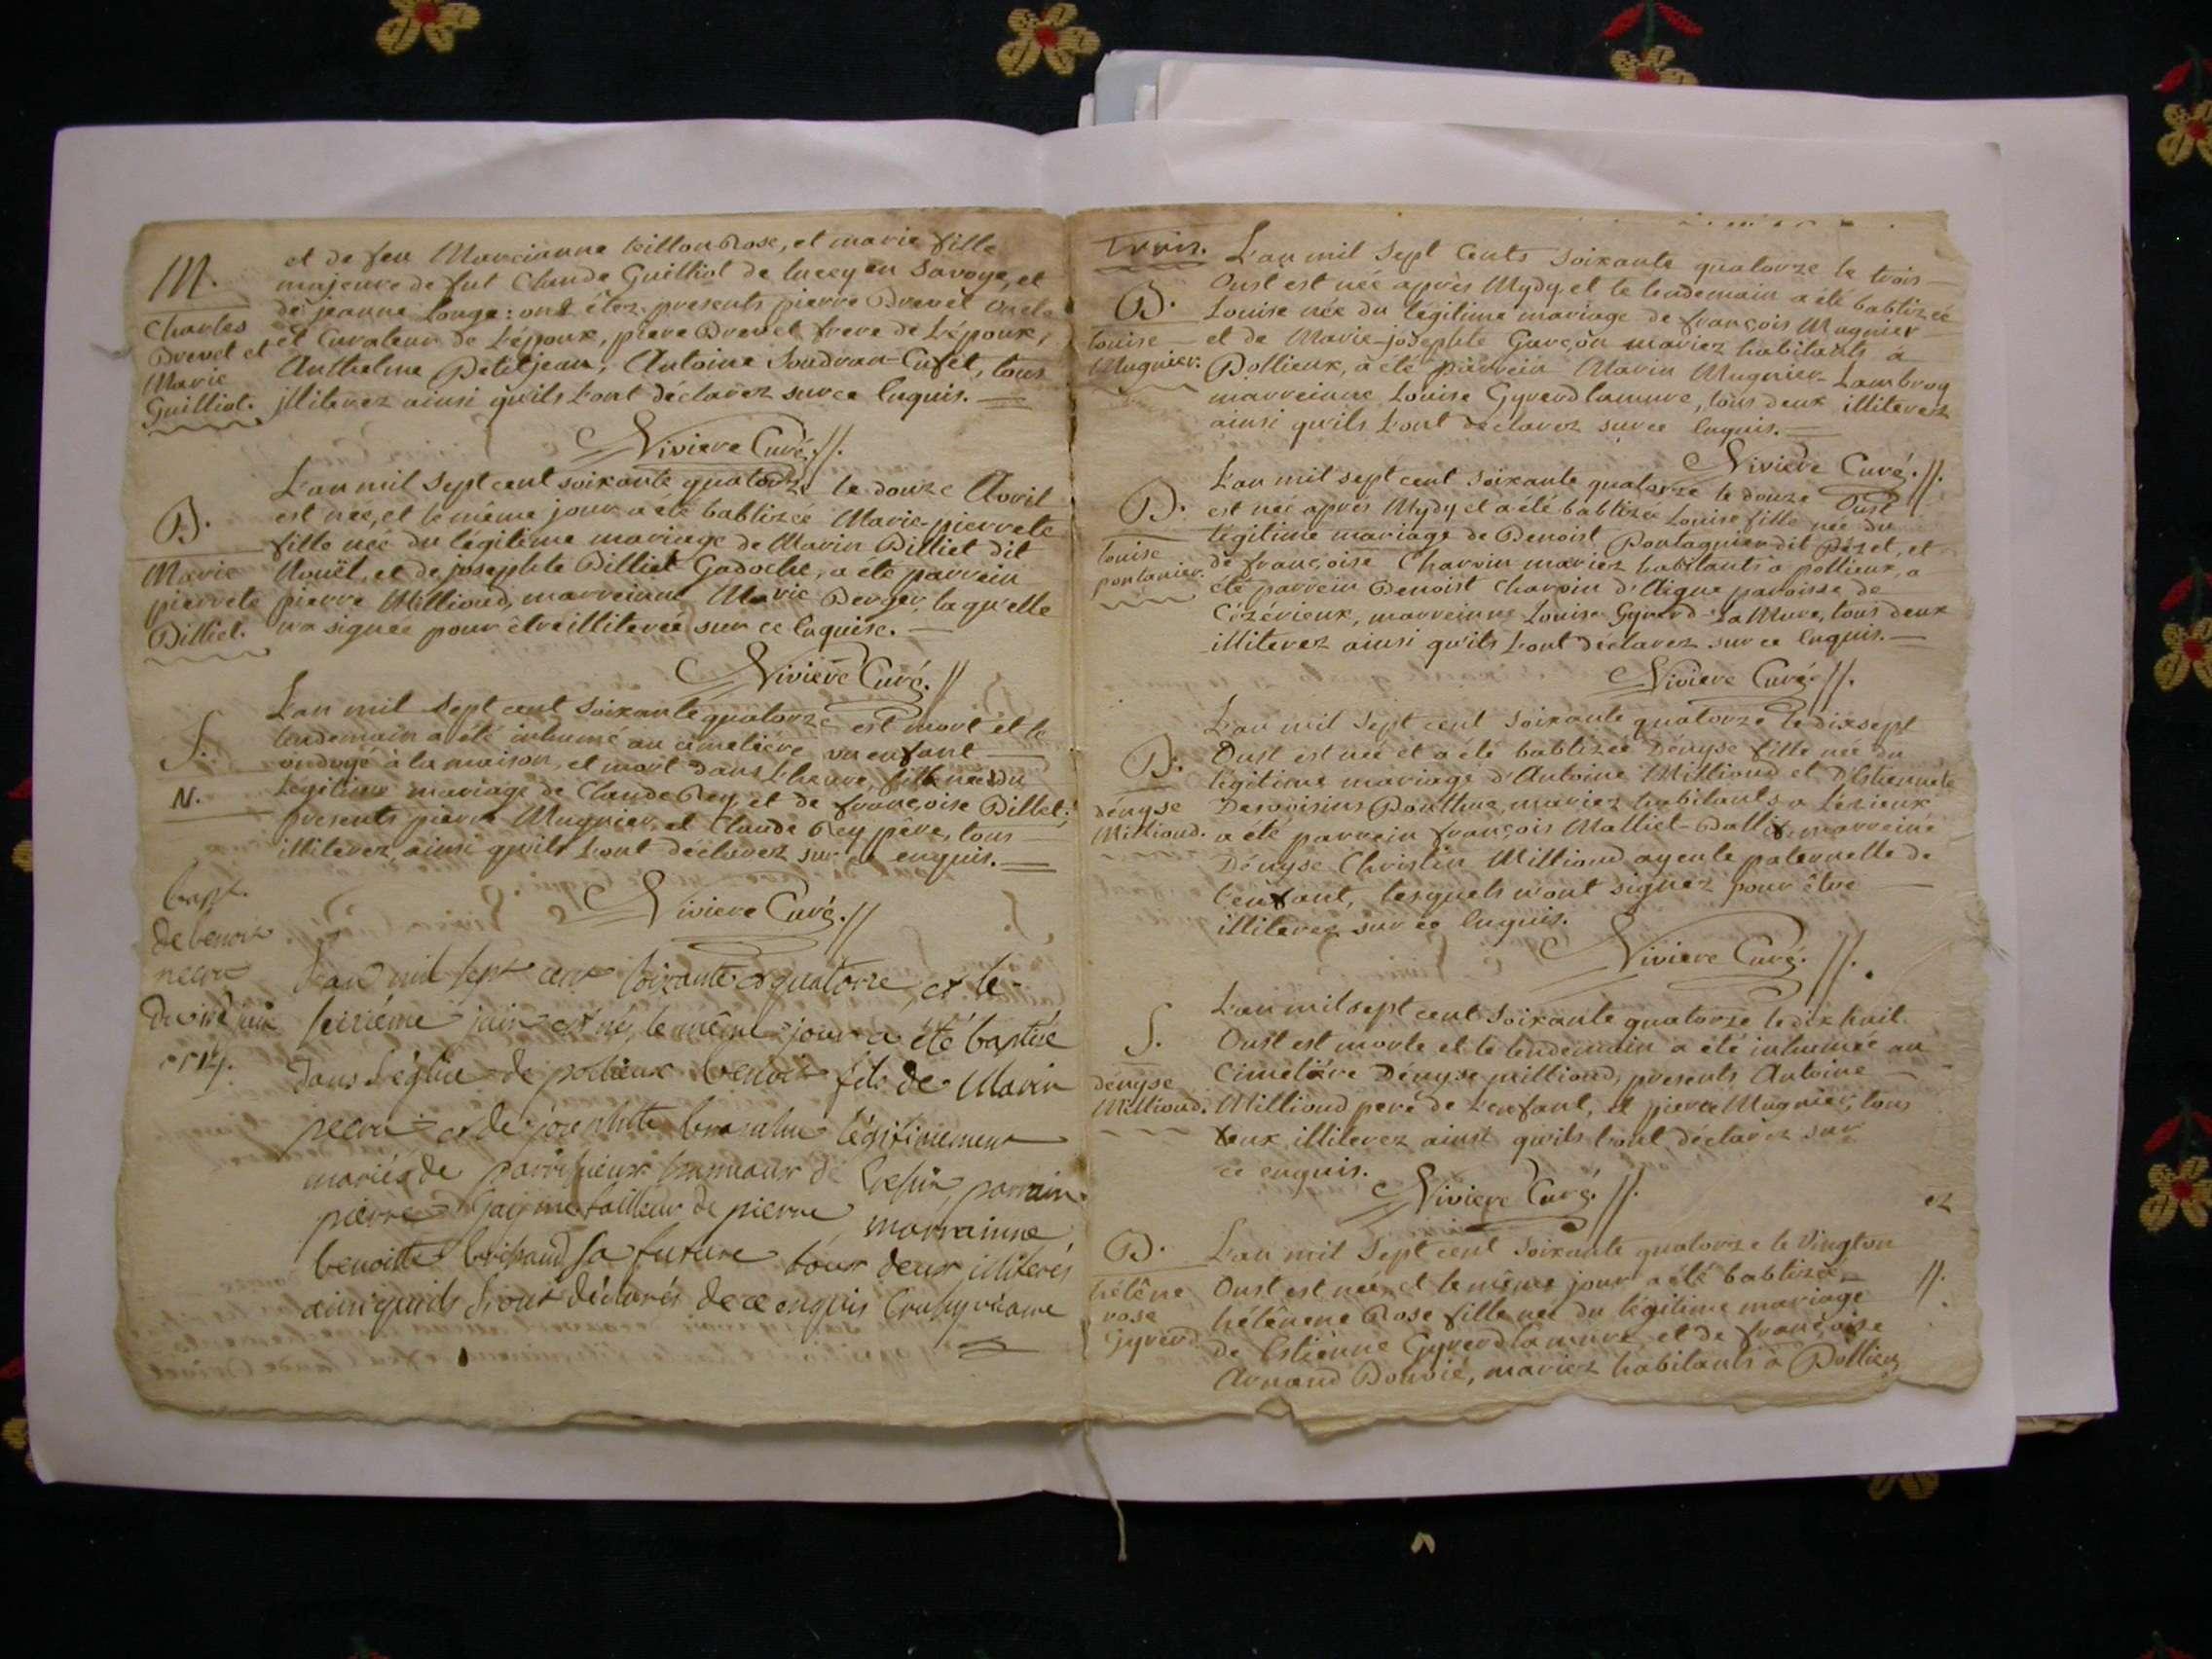 M.
Charles
Drevet et
Marie
Guilliot.
et de feu Marcianne Rose, et marie fille
majeure de fut Claude Guilliot de lucey en Savoye, et
de jeanne Longe: ont étez presents pierre Drevet oncle
et Curateur de L'époux, piere Drevet frere de L'époux,
Anthelme Petitjean, Antoine Cufet, tous
illiterez ainsi qu'ils L'ont déclarez sur ce Enquis.
Viviere Curé.//.
B.
Marie
pierrete
Billiet.
L'an mil Sept cent soixante quatorze le douze Avril
est née, et le même jour a été babtizée Marie-pierrete
fille née du légitime mariage de Marin Billiet dit
Nouët, et de josephte Billiet Gadoche, a été parrein
pierre Millioud, marreinne Marie Berger laquelle
n'a signée pour être illiterée sur ce Enquise.
Viviere Curé.//
S.
N.
L'an mil Sept cent Soixante quatorze est mort et le
lendemain a été inhumé au cimetiére un enfant
ondoyé à la maison, et mort dans L'heure, fils né du
Légitime mariage de Claude Rey et de françoise Billet;
presents pierre Mugnier, et Claude Rey pére, tous
illiterez, ainsi qu'ils L'ont déclarez sur ce enquis.
Viviere Curé.//
bapt.
de benoit
L'an mil sept cent soixante et quatorze, et le
seizième juin est né, le même jour a été baptisé
dans L'église de pollieux benoit fils de Marin
et de josephtte légitimement
mariés de parrain
pierre tailleur de pierre marrainne
benoitte sa future tous deux illiterés
ainsi qu'ils L'ont déclarés de ce enquis
Trois.
B.
Louise
Mugnier.
L'an mil Sept Cents Soixante quatorze le trois
Oust est née après Mydy, et le lendemain a été babtizée
Louise née du légitime mariage de françois Mugnier
et de Marie-josephte Garçon mariez habitants à
Pollieux, a été parrein Marin Mugnier-Lambrog
marreinne Louise Gyrerd lamure, tous deux illiterez
ainsi qu'ils L'ont déclarez sur ce Enquis.
Viviere Curé.//.
B.
Louise
pontanier.
L'an mil sept cent Soixante quatorze le douze Oust
est née après Mydy et a été babtizée Louise fille née du
légitime mariage de Benoist Pontagnier dit Pézet, et
de françoise Charvin mariez habitants a pollieux, a
été parrein Benoist Charvin d'Aigne paroisse de
Cézérieux, marreinne Louise Gyrerd-La Mure, tous deux
illiterez ainsi qu'ils L'ont déclarez sur ce Enquis.
Viviere Curé.//.
B.
dényse
Millioud.
L'an mil Sept cent Soixante quatorze le dixsept
Oust est née et a été babtizée Dényse fille née du
légitime mariage d'Antoine Millioud et D'Estiennete
Desvoisins Ponthue, mariez habitants a Lézieux
a été parrein françois Malliet-Pallix, marreine
Dényse Christin Millioud ayeule paternelle de
l'enfant, lesquels n'ont signez pour être
illiterez sur ce Enquis.
Viviere Curé.//.
S.
dényse
Millioud.
L'an mil sept cent Soixante quatorze le dix huit
Oust est morte et le lendemain a été inhumée au
Cimetière Dényse milliond, presents Antoine
Millioud pere de L'enfant, et pierre Mugnier, tous
deux illiterez ainsi qu'ils l'ont déclarez sur
ce enquis.
Viviere Curé.//.
B.
hélêne
rose
Gyrerd
L'an mil Sept cent Soixante quatorze le Vingt un
Oust est née, et le même jour a été babtizée
hélênne Rose fille née du légitime mariage
de Estienne Gyrerd la mure et de françoise
Arnaud Donvié, mariez habitants à Pollieux
ez
//.